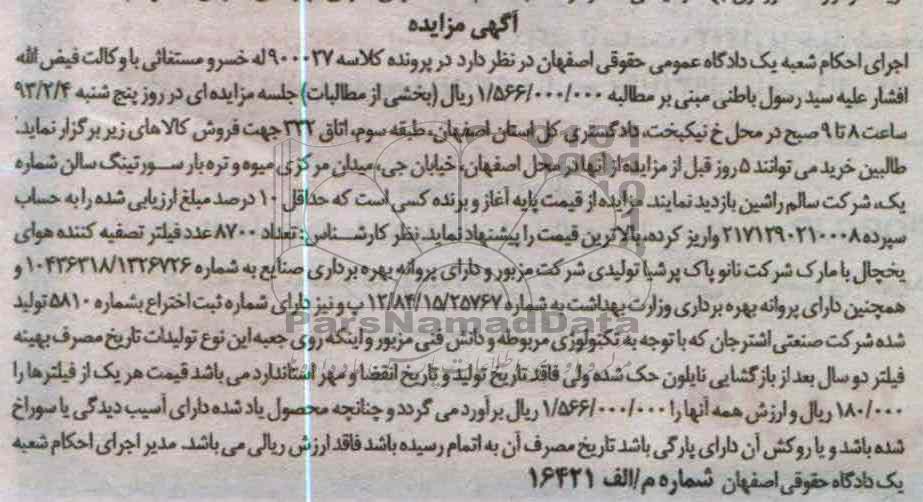 آگهی مزایده
اجرای احکام شعبه یک دادگاه عمومی حقوقی اصفهان در نظر دارد در پرونده کلاسه ۹۰۰۰۳۷ له خسرو مستغاثی با وکالت فیض الله
افشار علیه سید رسول باطنی مبنی بر مطالبه ۱/۵۶۶/۰۰۰/۰۰۰ ریال (بخشی از مطالبات) جلسه مزایده ای در روز پنج شنبه ۹۳/۲/۴
ساعت ۸ تا ۹ صبح در محل خ نیکبخت، دادگستری کل استان اصفهان، طبقه سوم، اتاق ۳۳۲ جهت فروش کالا های زیر برگزار نماید.
طالبین خرید می توانند ۵ روز قبل از مزایده از آنها در محل اصفهان، خیابان جی، میدان مرکزی میوه و تره بار سورتینگ سالن شماره
یک، شرکت سالم راشین بازدید نمایند. مزایده از قیمت پایه آغاز و برنده کسی است که حداقل ۱۰ درصد مبلغ ارزیابی شده را به حساب
سپرده ۲۱۷۱۲۹۰۲۱۰۰۰۸ واریز کرده، بالاترین قیمت را پیشنهاد نماید. نظر کارشناس: تعداد ۸۷۰۰ عدد فیلتر تصفیه کننده هوای
یخچال با مارک شرکت نانو پاک پرشیا تولیدی شرکت مزبور و دارای پروانه بهره برداری صنایع به شماره ۱۰۴۳۶۳۱۸/۱۳۲۶۷۲۶ و
همچنین دارای پروانه بهره برداری وزارت بهداشت به شماره ۱۲/۸۴/۱۵/۲۵۷۶۷ پ و نیز دارای شماره ثبت اختراع بشماره ۵۸۱۰ تولید
شده شرکت صنعتی اشترجان که با توجه به تکنولوژی مربوطه و دانش فنی مزبور و اینکه روی جعبه این نوع تولیدات تاریخ مصرف بهینه
فیلتر دو سال بعد از بازگشایی نایلون حک شده ولی فاقد تاریخ تولید و تاریخ انقضا و مهر استاندارد می باشد قیمت هر یک از فیلترها را
۱۸۰/۰۰۰ ریال و ارزش همه آنها را ۱/۵۶۶/۰۰۰/۰۰۰ ریال برآورد می گردد و چنانچه محصول یاد شده دارای آسیب دیدگی یا سوراخ
شده باشد و یا روکش آن دارای پارگی باشد تاریخ مصرف آن به اتمام رسیده باشد فاقد ارزش ریالی می باشد. مدیر اجرای احکام شعبه
یک دادگاه حقوقی اصفهان شماره م/الف ۱۶۴۲۱
ParsNamadData